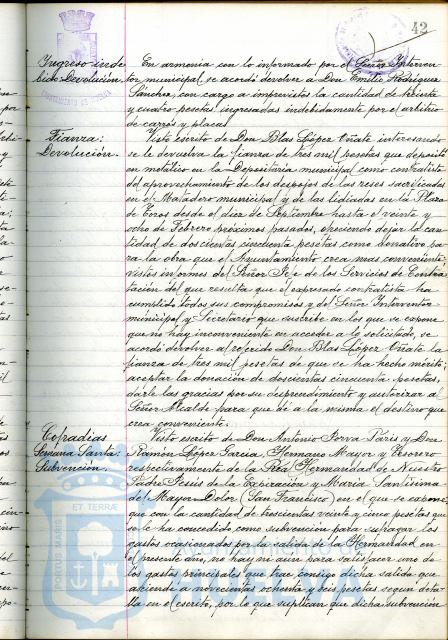 42
Ingreso inde
bido: Devolución.
En armonia con lo informado por el Señor Interven
tor municipal se acordó devolver a Don Emilio Rodríguez
Sánchez, con cargo a imprevistos la cantidad de
y cuatro pesetas ingresadas indebidamente por el arbitrio
de carros y placas.
Fianza:
Devolución.
Visto escrito de Don Blas López Oñate interesando
se le devuelva la fianza de tres mil pesetas que depositó
en metálico en la Depositaria municipal como contratista
del aprovechamiento de los despojos de las reses sacrificadas
en el Matadero municipal y de las lidiadas en la Plaza
de Toros desde el diez de Septiembre hasta el veinte y
ocho de Febrero próximos pasados, ofreciendo dejar la can
tidad de doscientas cincuenta pesetas como donativo pa
ra la obra que el Ayuntamiento crea mas conveniente;
vistos informes del Señor Jefe de los Servicios de Contra
tación del que resulta que el expresado contratista ha
cumplido todos sus compromisos y del Señor Interventor
municipal y Secretario que suscribe en los que se expone
que no hay inconveniente en acceder a lo solicitado, se
acordó devolver al referido Don Blas López Oñate la
fianza de tres mil pesetas de que se ha hecho mérito;
aceptar la donación de doscientas cincuenta pesetas,
darle las gracias por su desprendimiento y autorizar al
Señor Alcalde para que dé a la misma el destino que
crea conveniente.
Cofradias
Semana Santa:
Subvención.
Visto escrito de Don Antonio Jorva París y Don
Ramón López Garcia, Hermano Mayor y Tesorero
respectivamente de la Real Hermandad de Nuestro
Padre Jesús de la Expiración y Maria Santísima
del Mayor Dolor (San Francisco) en el que se expone
que con la cantidad de trescientas veinte y cinco pesetas que
se le ha concedido como subvención para sufragar los
gastos ocasionados por la salida de la Hermandad en
el presente año, no hay ni aun para satisfacer uno de
los gastos principales que trae consigo dicha salida que
asciende a novecientas ochenta y seis pesetas segun deta
lla en el escrito, por lo que suplican que dicha subvención
ET TERRÆ
PORTUS MARIS
Ayuntamiento de